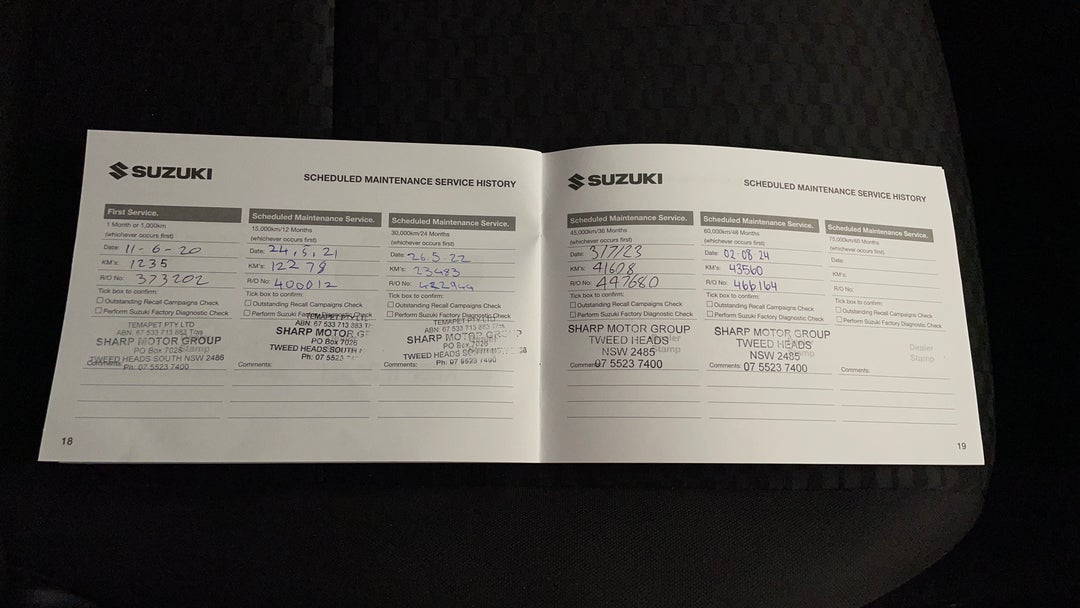 SUZUKI
SCHEDULED MAINTENANCE SERVICE HISTORY
First Service.
1 Month or 1,000km
(whichever occurs first)
Date: 11-6-20
KM's: 1235
R/O No: 373202
Tick box to confirm:
Outstanding Recall Campaigns Check
Perform Suzuki Factory Diagnostic Check
TEMAPET PTY LTD
ABN: 67 533 713 883 T/as
SHARP MOTOR GROUP
PO Box 7026
TWEED HEADS SOUTH NSW 2486
Ph: 07 5523 7400
Stamp
Comments:
Scheduled Maintenance Service.
15,000km/12 Months
(whichever occurs first)
Date: 24,5,21
KM's: 12279
R/O No: 400012
Tick box to confirm:
Outstanding Recall Campaigns Check
Perform Suzuki Factory Diagnostic Check
TEMAPET PTY LTD
ABN: 67 533 713 883 T/
SHARP MOTOR G
PO Box 7026
TWEED HEADS SOUTH
Ph: 07 5523
Comments:
Scheduled Maintenance Service.
30,000km/24 Months
(whichever occurs first)
Date: 26.5.22
KM's: 23483
R/O No: 422944
Tick box to confirm:
Outstanding Recall Campaigns Check
Perform Suzuki Factory Diagnostic Check
TEMAPET PTY LTD
ABN: 67 533 713 883 T/as
SHARP MOTOR GROUP
PO Box 7026
TWEED HEADS SOUTH
Ph: 07 5523 7400
Comments:
18
SUZUKI
SCHEDULED MAINTENANCE SERVICE HISTORY
Scheduled Maintenance Service.
45,000km/36 Months
(whichever occurs first)
Date: 3/7/23
KM's: 41608
R/O No: 447680
Tick box to confirm:
Outstanding Recall Campaigns Check
Perform Suzuki Factory Diagnostic Check
SHARP MOTOR GROUP
TWEED HEADS
NSW 2485
07 5523 7400
Dealer
Stamp
Comments:
Scheduled Maintenance Service.
60,000km/48 Months
(whichever occurs first)
Date: 02-08-24
KM's: 43560
R/O No: 466164
Tick box to confirm:
Outstanding Recall Campaigns Check
Perform Suzuki Factory Diagnostic Check
SHARP MOTOR GROUP
TWEED HEADS
NSW 2485
Stamp
Comments: 07 5523 7400
Scheduled Maintenance Service.
75,000km/60 Months
(whichever occurs first)
Date:
KM's:
R/O No:
Tick box to confirm:
Outstanding Recall Campaigns Check
Perform Suzuki Factory Diagnostic Check
Dealer
Stamp
Comments:
19